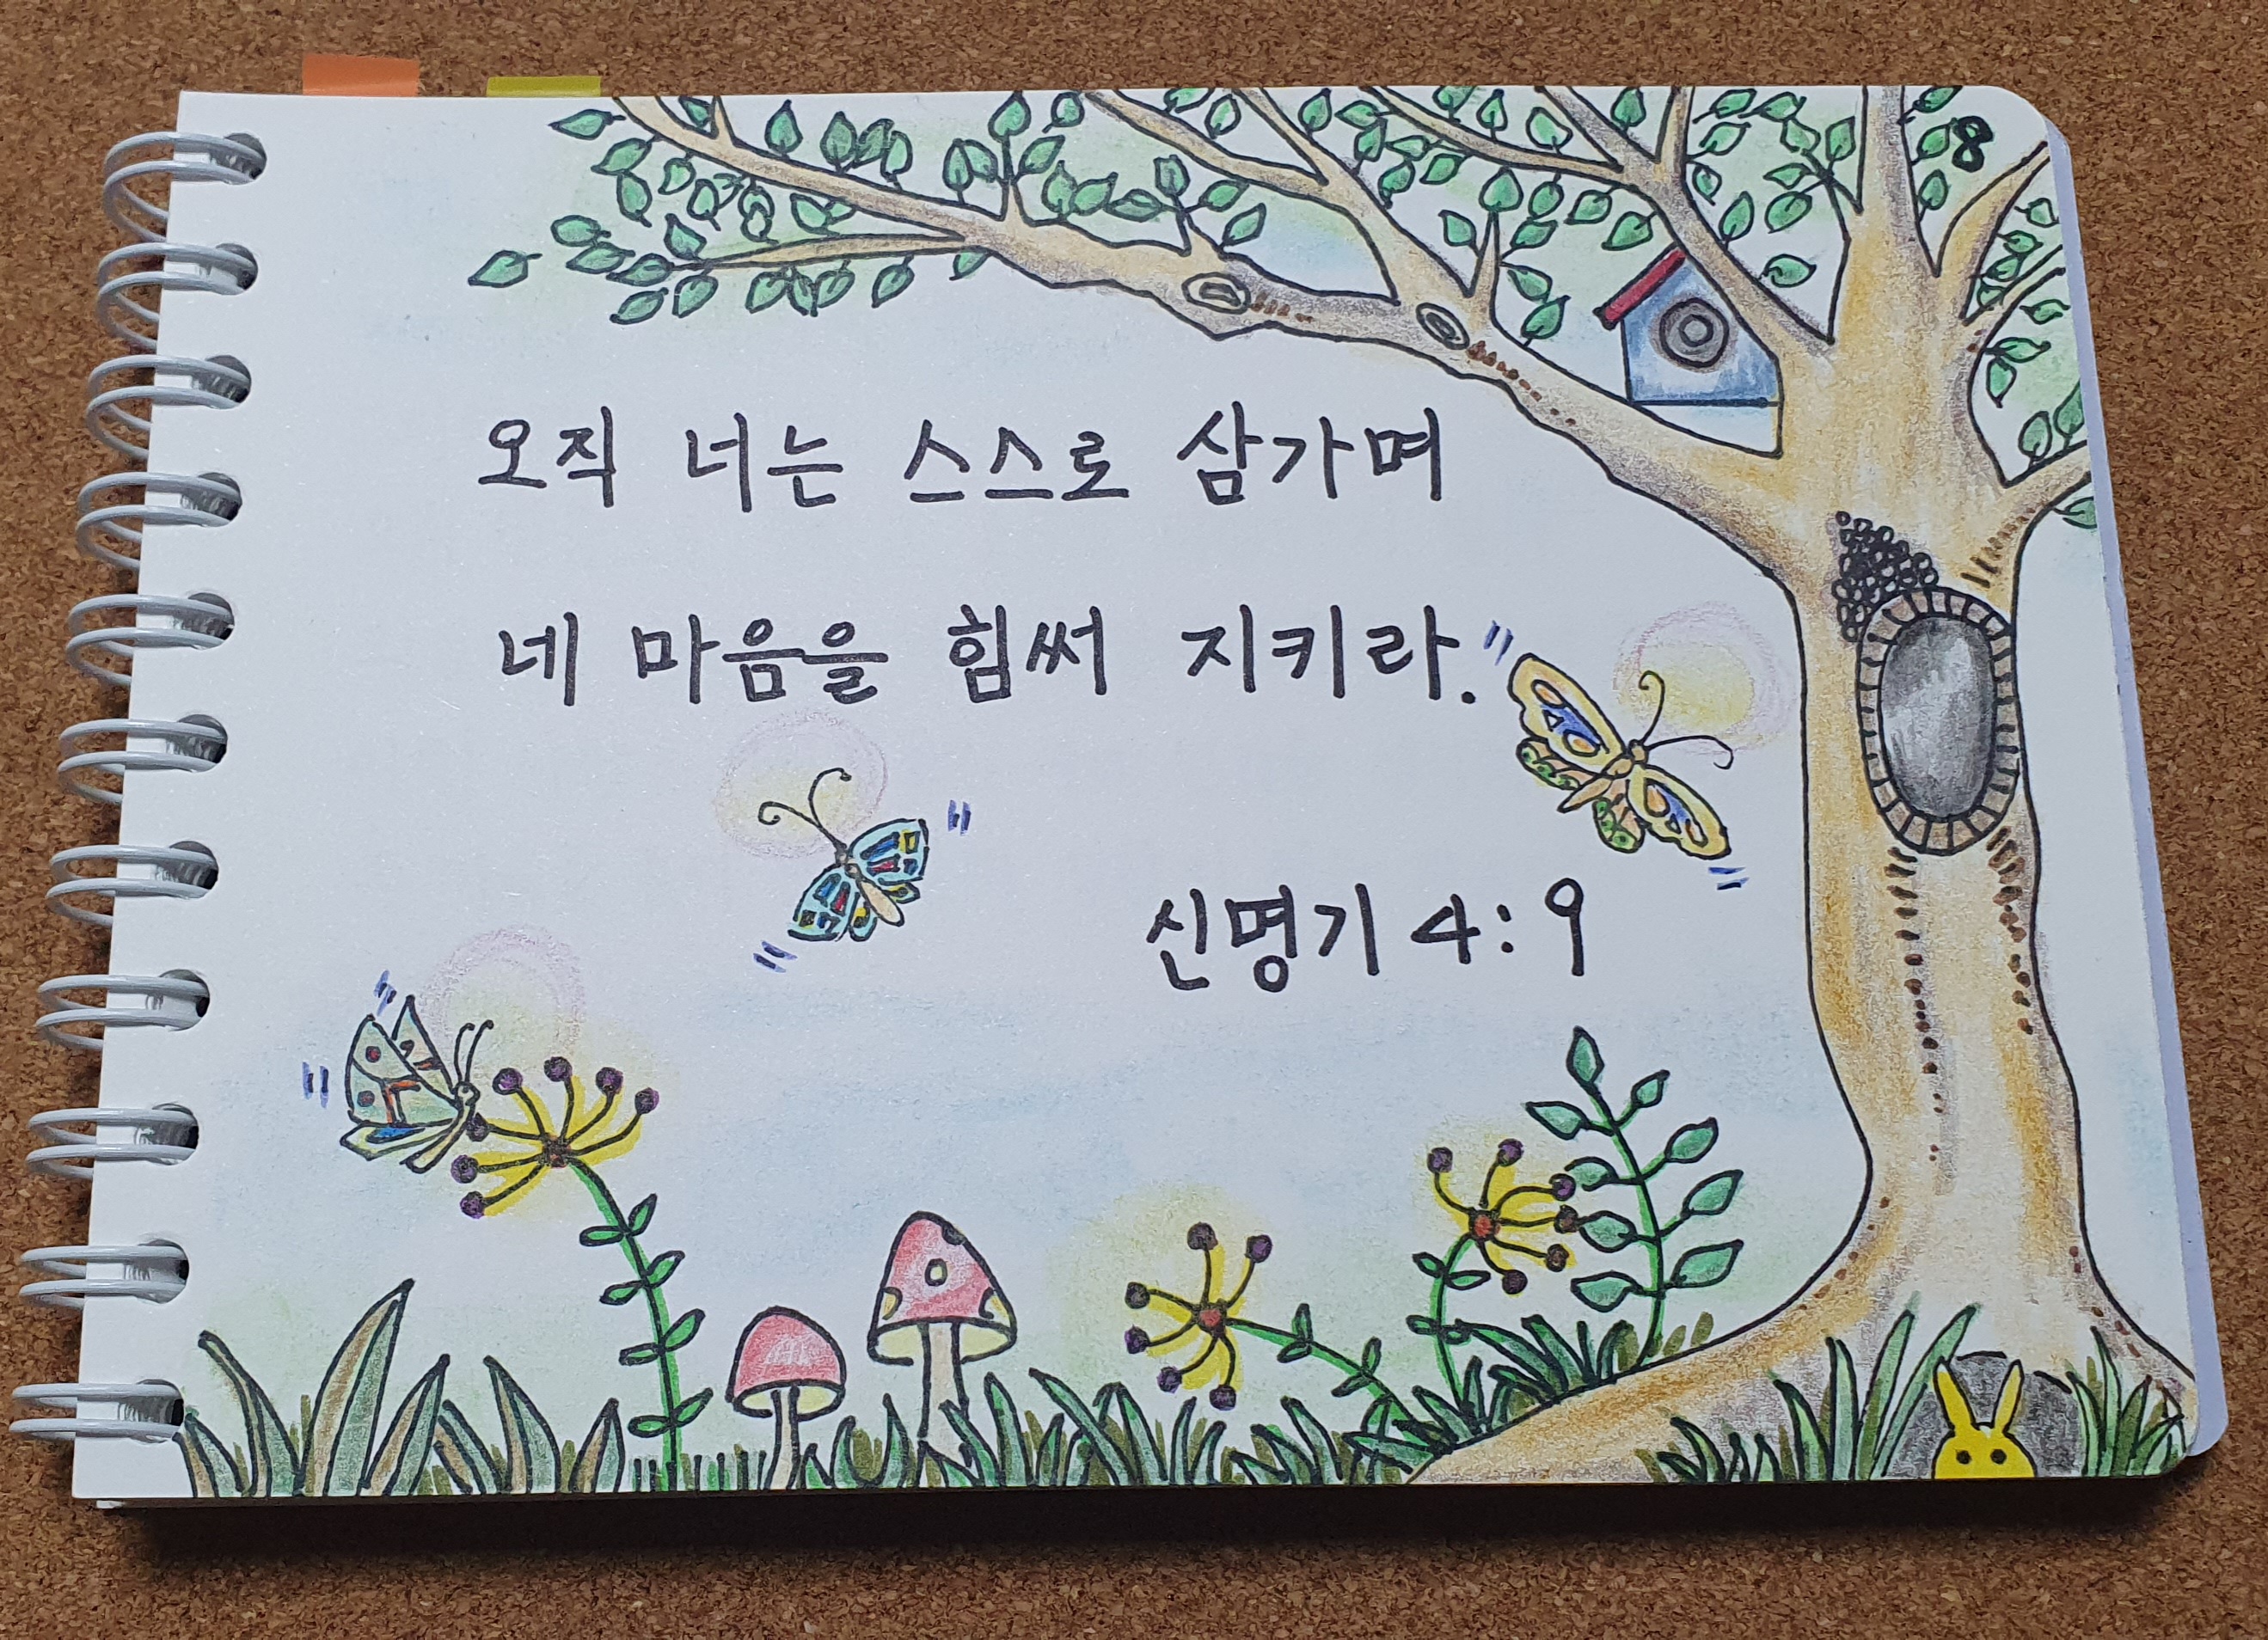 오직 너는 스스로 삼가며
네 마음을 힘써 지키라.
신명기 4:9